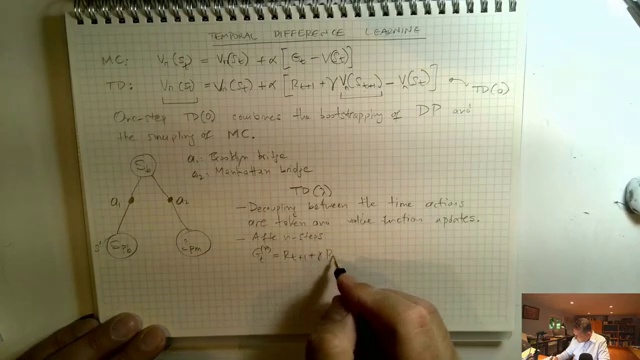 TEMPORAL DIFFERENCE LEARNING
MC: Vπ(St) = Vπ(St) + α [Gt − V(St)]
TD: Vπ(St) = Vπ(St) + α [Rt+1 + γVπ(St+1) − Vπ(St)] TD(0)
One-step TD(0) combines the bootstrapping of DP and
the sampling of MC.
a1: Brooklyn bridge
a2: Manhattan bridge
a1 a2
TD(λ)
- Decoupling between the time actions
are taken and value function updates.
- After n-steps
Gt(n) = Rt+1 + γ R